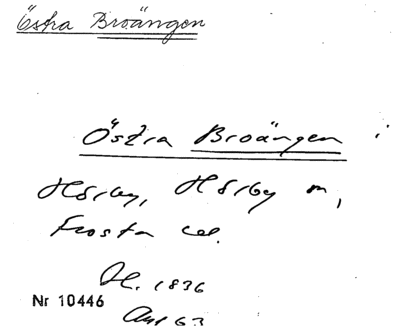 Östra Broängen
Östra Broängen i
Hörby, Hörby m,
Frosta
1836
Nr 10446
63